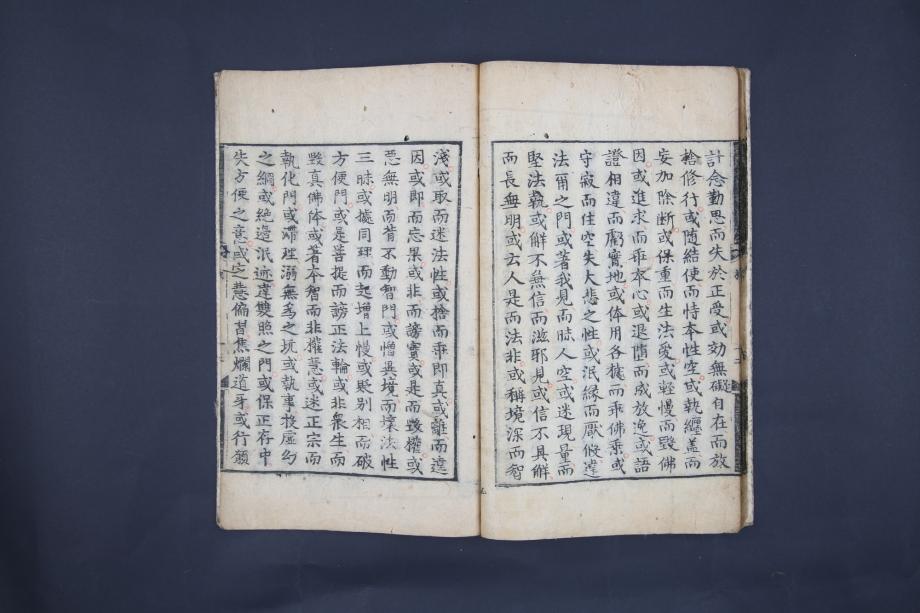 計念勤思而失於正受或効無礙自在而放
捨修行或随結使而恃本性空或執纏盖而
妄加除断或保重而生法愛或輕慢而毀佛
因或進求而乖本心或退堕而成放逸或語
證相違而虧實地或体用各據而乖佛乘或
守寂而住空失大悲之性或泯縁而厭假違
法甭之門或著我見而昧人空或迷現量而
堅法執或解不無信而滋邪見或信不具解
而長無明或云人是而法非或稱境深而智
淺或取而迷法性或捨而乖即真或離而違
因或即而忘果或非而謗實或是而毀權或
惡無明而背不動智門或憎異境而壞法性
三昧或據同理而起增上慢或貶別相而破
方便門或是菩提而謗正法輪或非衆生而
毀真佛体或著本智而非權慧或迷正宗而
執化門或滞理溺無為之坑或執事投虛幻
之網或絶邊泯迹違雙照之門或保正存中
失方便之意或定慧偏習焦爛道牙或行願